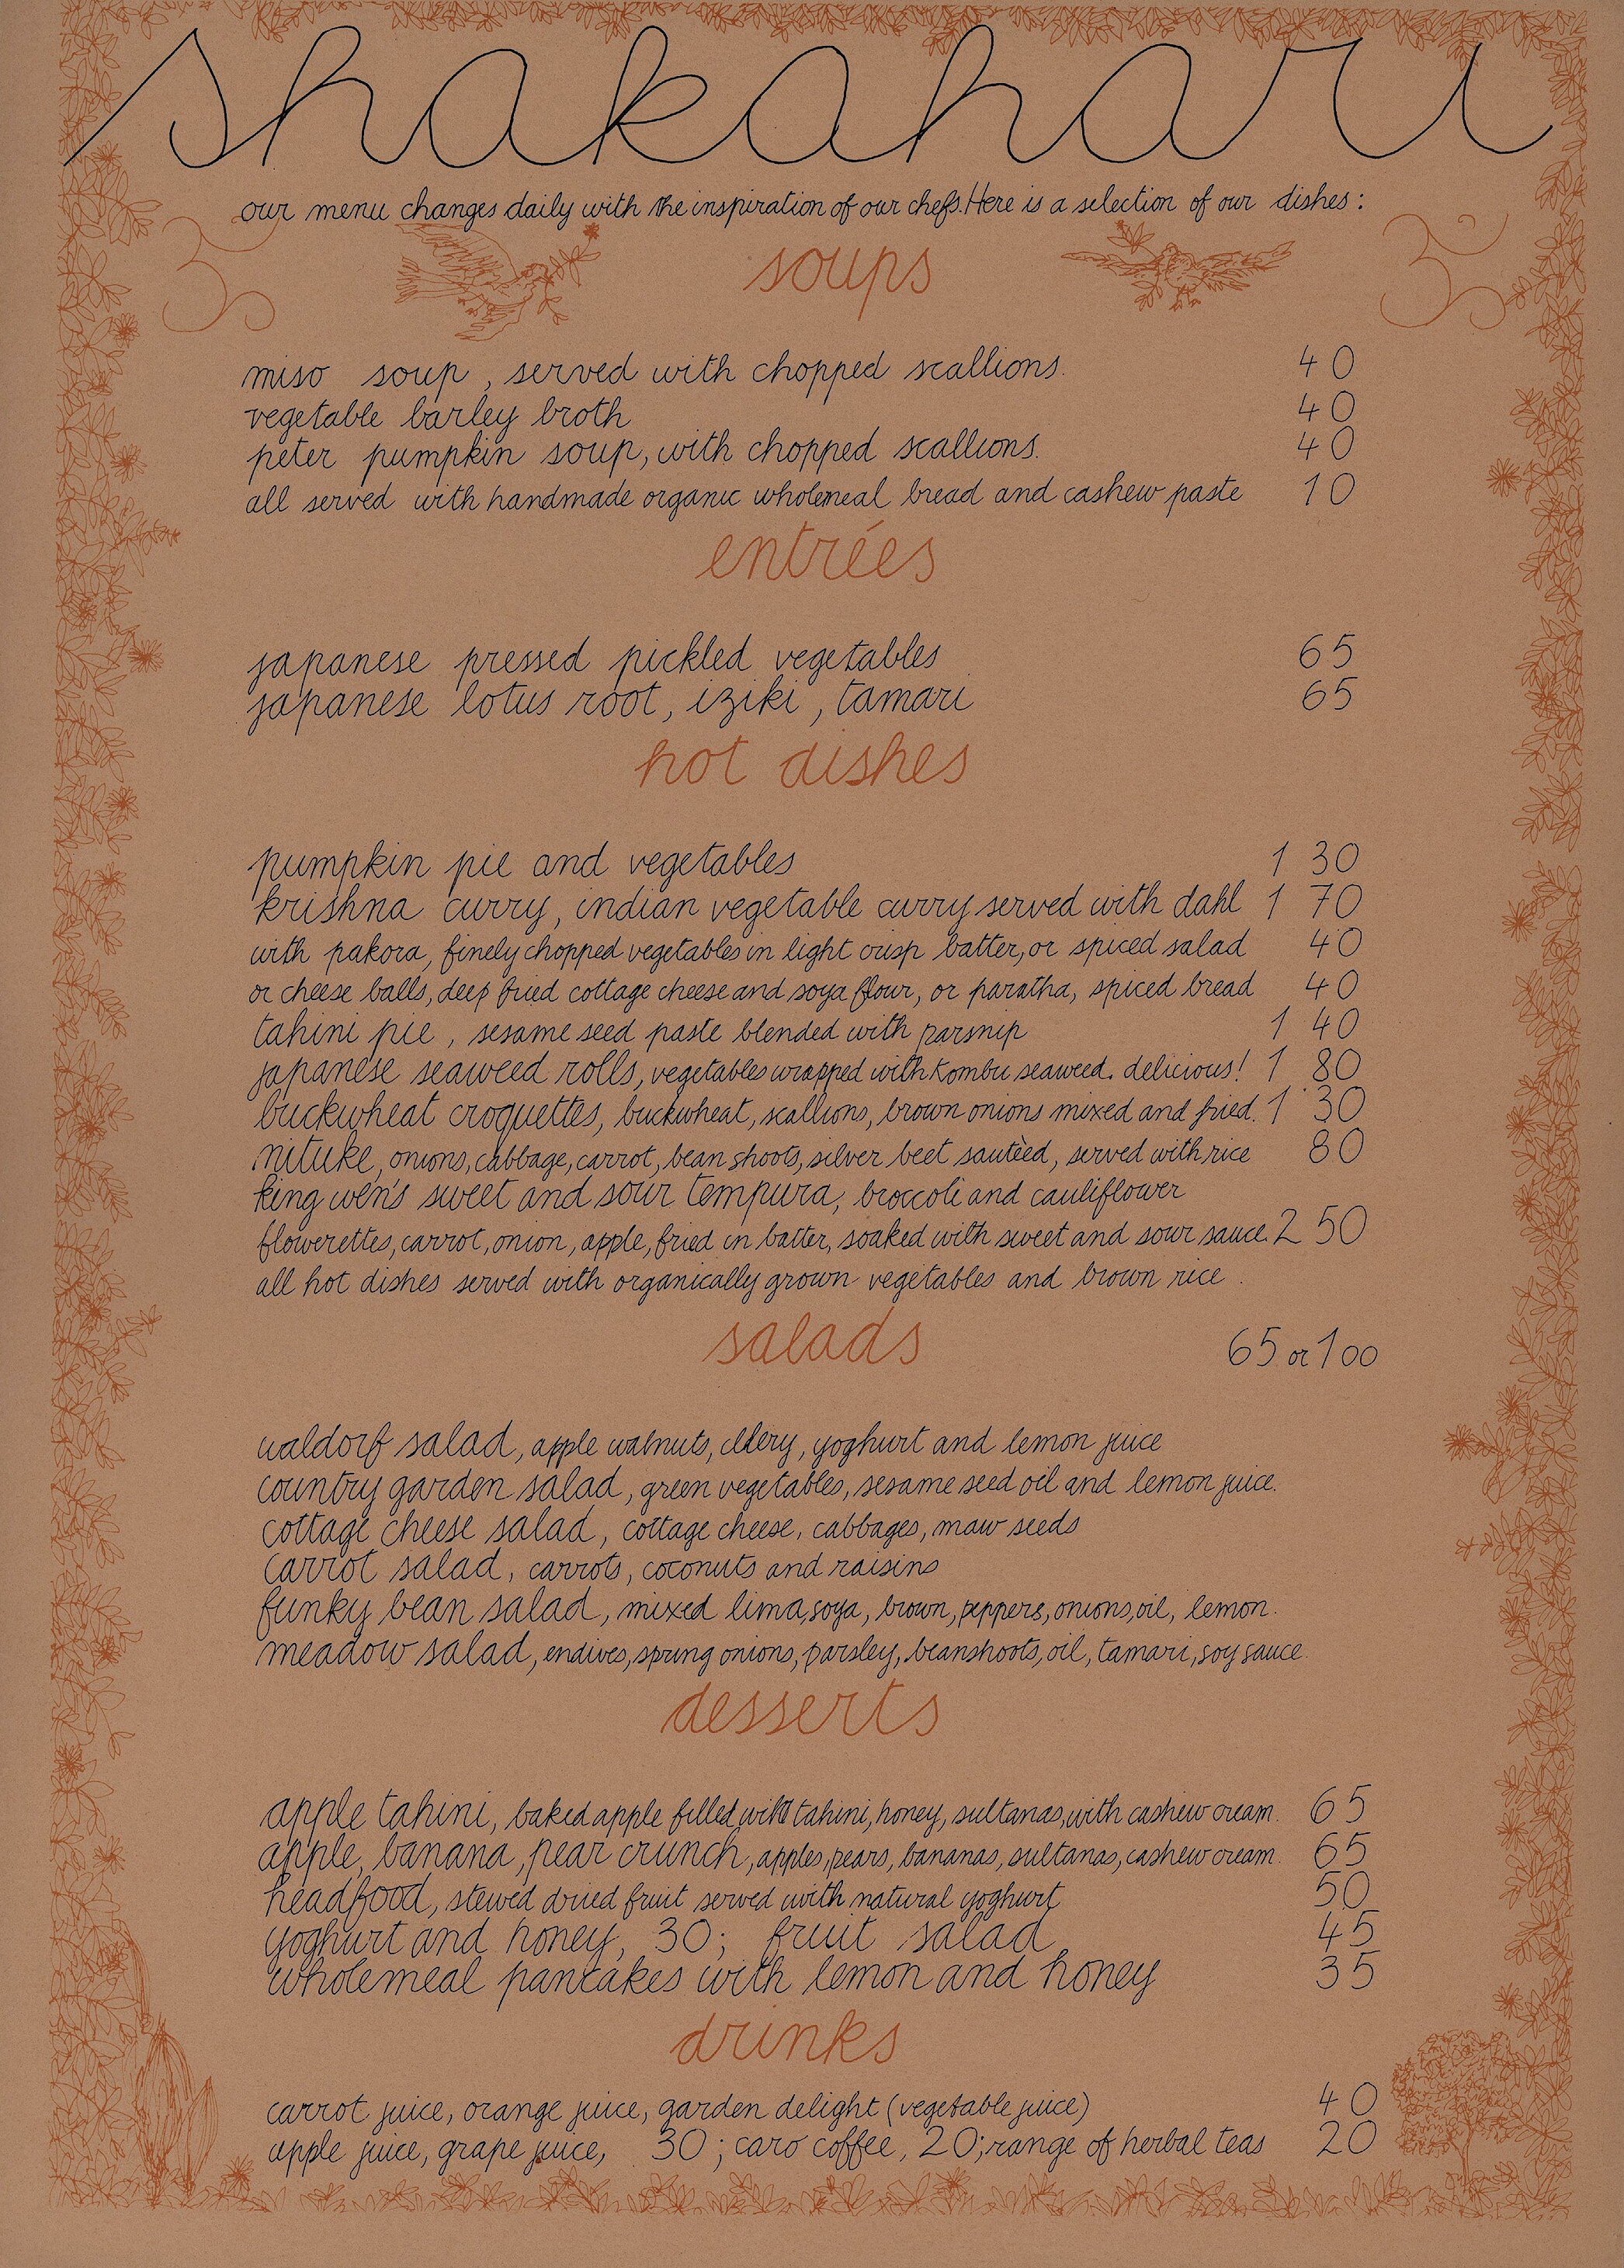 shakahari
our menu changes daily with the inspiration of our chefs. Here is a selection of our dishes:
soups
miso soup, served with chopped scallions. 40
vegetable barley broth 40
peter pumpkin soup, with chopped scallions. 40
all served with handmade organic wholemeal bread and cashew paste 10
entrées
japanese pressed pickled vegetables 65
japanese lotus root, iziki, tamari 65
hot dishes
pumpkin pie and vegetables 1 30
krishna curry, indian vegetable curry served with dahl 1 70
with pakora, finely chopped vegetables in light crisp batter, or spiced salad 40
or cheese balls, deep fried cottage cheese and soya flour, or paratha, spiced bread 40
tahini pie, sesame seed paste blended with parsnip 1 40
japanese seaweed rolls, vegetables wrapped with Kombu seaweed. delicious! 1 80
buckwheat croquettes, buckwheat, scallions, brown onions mixed and fried. 1 30
nituke, onions, cabbage, carrot, bean shoots, silver beet sautèed, served with rice 80
king wen's sweet and sour tempura, broccoli and cauliflower
flowerettes, carrot, onion, apple, fried in batter, soaked with sweet and sour sauce. 2 50
all hot dishes served with organically grown vegetables and brown rice.
salads 65 or 1 00
waldorf salad, apple walnuts, cellery, yoghurt and lemon juice
country garden salad, green vegetables, sesame seed oil and lemon juice.
cottage cheese salad, cottage cheese, cabbages, maw seeds
carrot salad, carrots, coconuts and raisins
funky bean salad, mixed lima, soya, brown, peppers, onions, oil, lemon.
meadow salad, endives, spring onions, parsley, beanshoots, oil, tamari, soy sauce.
desserts
apple tahini, baked apple filled with tahini, honey, sultanas, with cashew cream. 65
apple, banana, pear crunch, apples, pears, bananas, sultanas, cashew cream. 65
headfood, stewed dried fruit served with natural yoghurt 50
yoghurt and honey, 30; fruit salad 45
wholemeal pancakes with lemon and honey 35
drinks
carrot juice, orange juice, garden delight (vegetable juice) 40
apple juice, grape juice, 30; caro coffee, 20; range of herbal teas 20